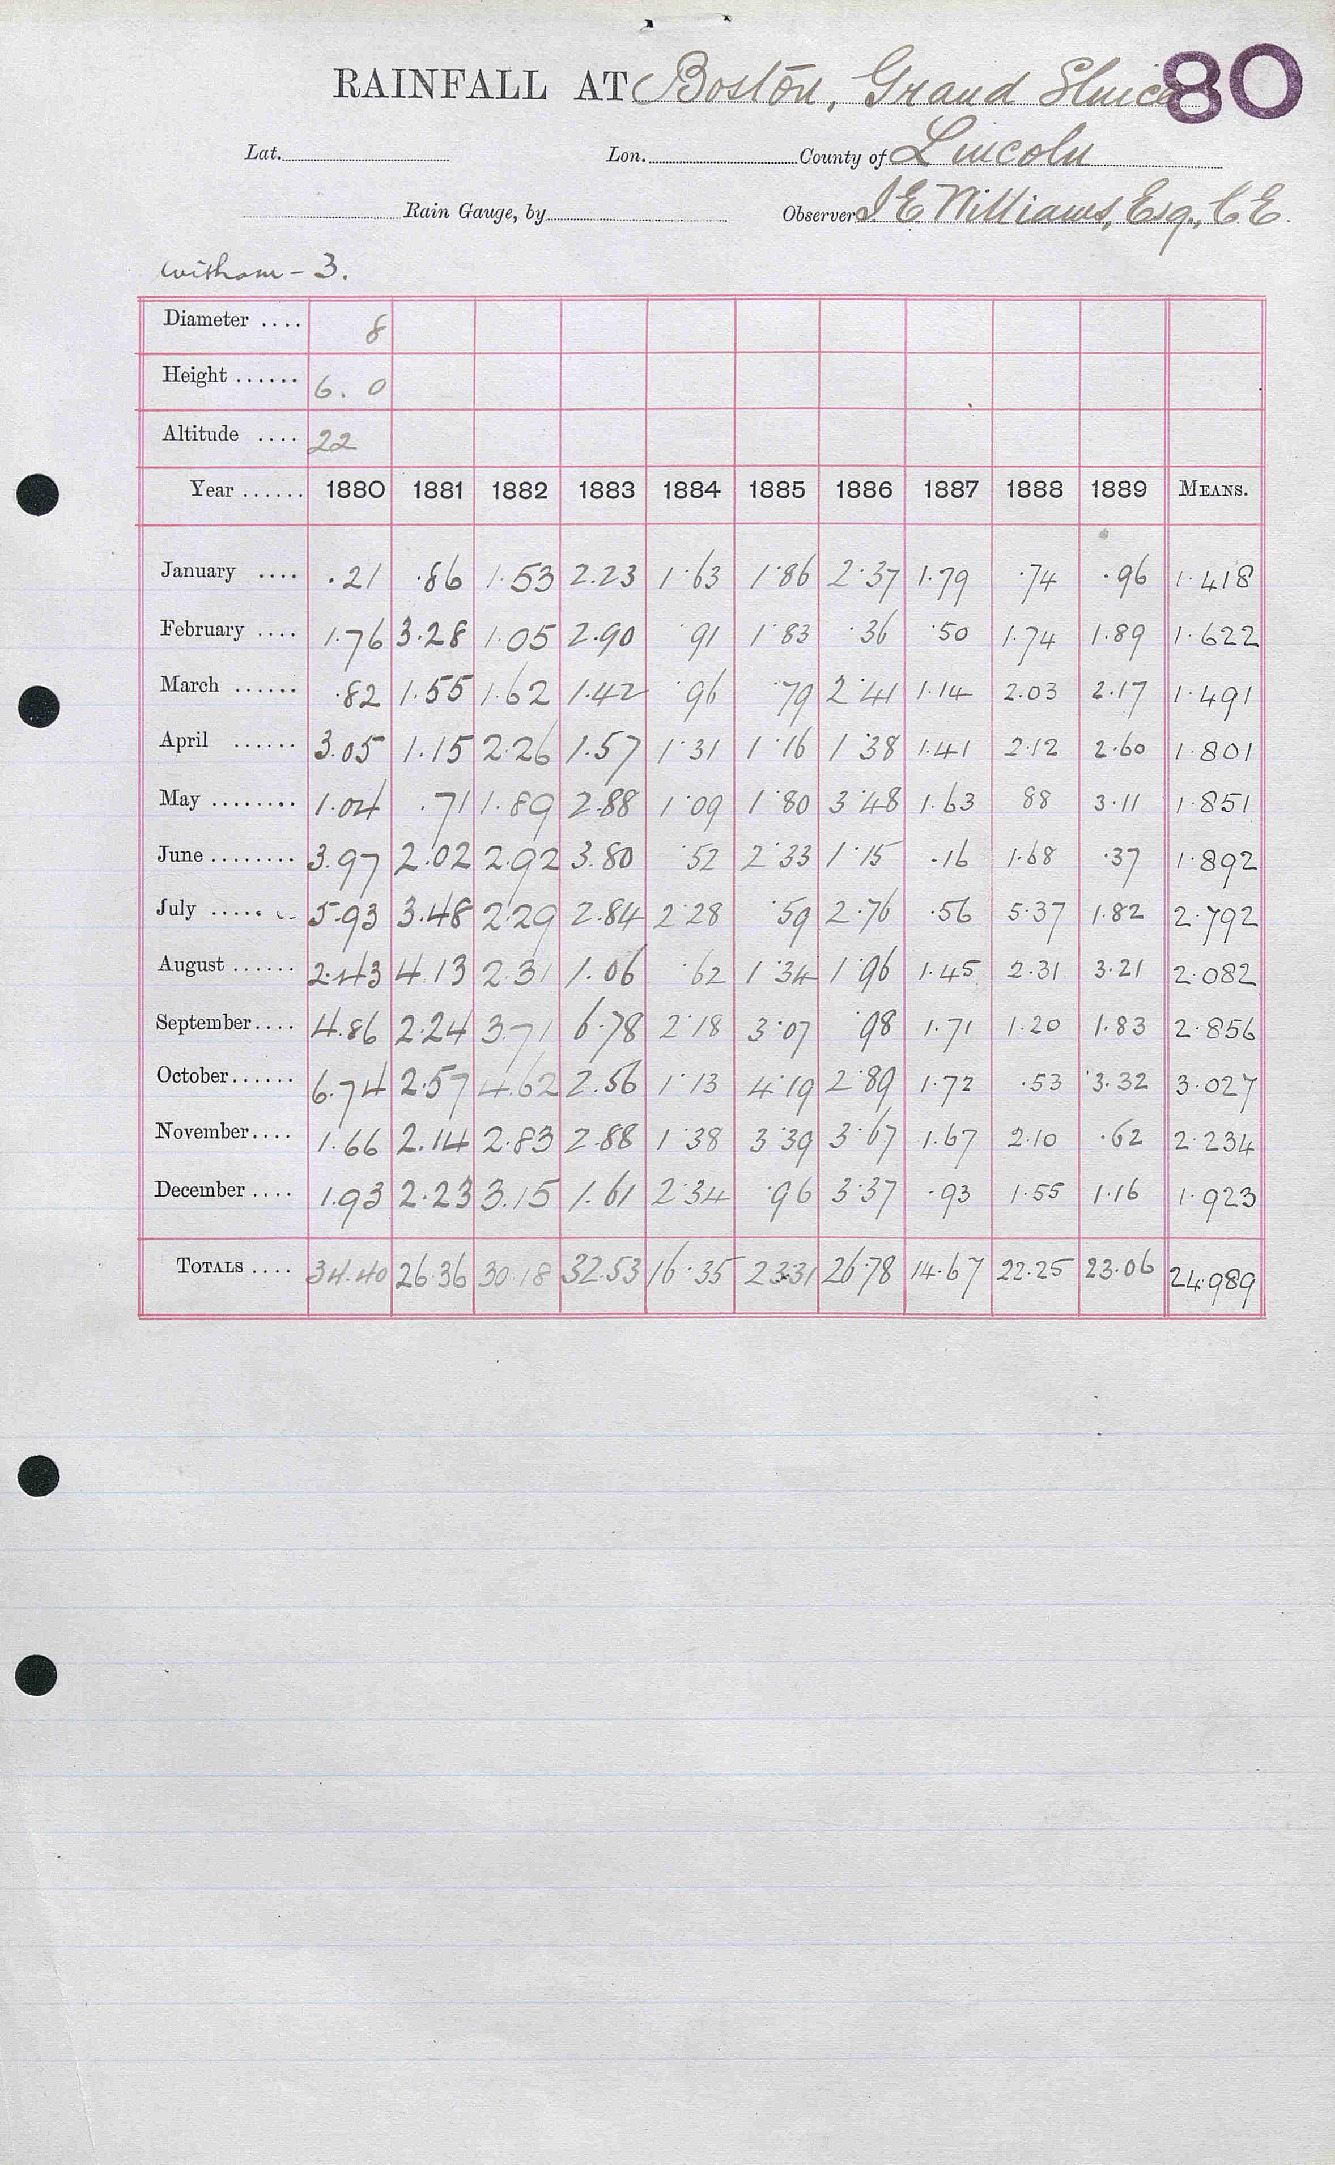 RAINFALL AT Boston, Grand Sluice 80
Lat. Lon. County of Lincoln
Rain Gauge, by Observer J E Williams, Esq., C.E.
Witham - 3.
Diameter .... 8
Height ...... 6. 0
Altitude .... 22
Year ...... 1880 1881 1882 1883 1884 1885 1886 1887 1888 1889 MEANS.
January .... .21 .86 1.53 2.23 1.63 1.86 2.37 1.79 .74 .96 1.418
February .... 1.76 3.28 1.05 2.90 .91 1.83 .36 .50 1.74 1.89 1.622
March ...... .82 1.55 1.62 1.42 .96 .79 2.41 1.14 2.03 2.17 1.491
April ...... 3.05 1.15 2.26 1.57 1.31 1.16 1.38 1.41 2.12 2.60 1.801
May ........ 1.04 .71 1.89 2.88 1.09 1.80 3.48 1.63 88 3.11 1.851
June ........ 3.97 2.02 2.92 3.80 .52 2.33 1.15 .16 1.68 .37 1.892
July ...... 5.93 3.48 2.29 2.84 2.28 .59 2.76 .56 5.37 1.82 2.792
August ...... 2.43 4.13 2.31 1.06 .62 1.34 1.96 1.45 2.31 3.21 2.082
September.... 4.86 2.24 3.71 6.78 2.18 3.07 .98 1.71 1.20 1.83 2.856
October...... 6.74 2.57 4.62 2.56 1.13 4.19 2.89 1.72 .53 3.32 3.027
November.... 1.66 2.14 2.83 2.88 1.38 3.39 3.67 1.67 2.10 .62 2.234
December .... 1.93 2.23 3.15 1.61 2.34 .96 3.37 .93 1.55 1.16 1.923
TOTALS .... 34.40 26.36 30.18 32.53 16.35 23.31 26.78 14.67 22.25 23.06 24.989